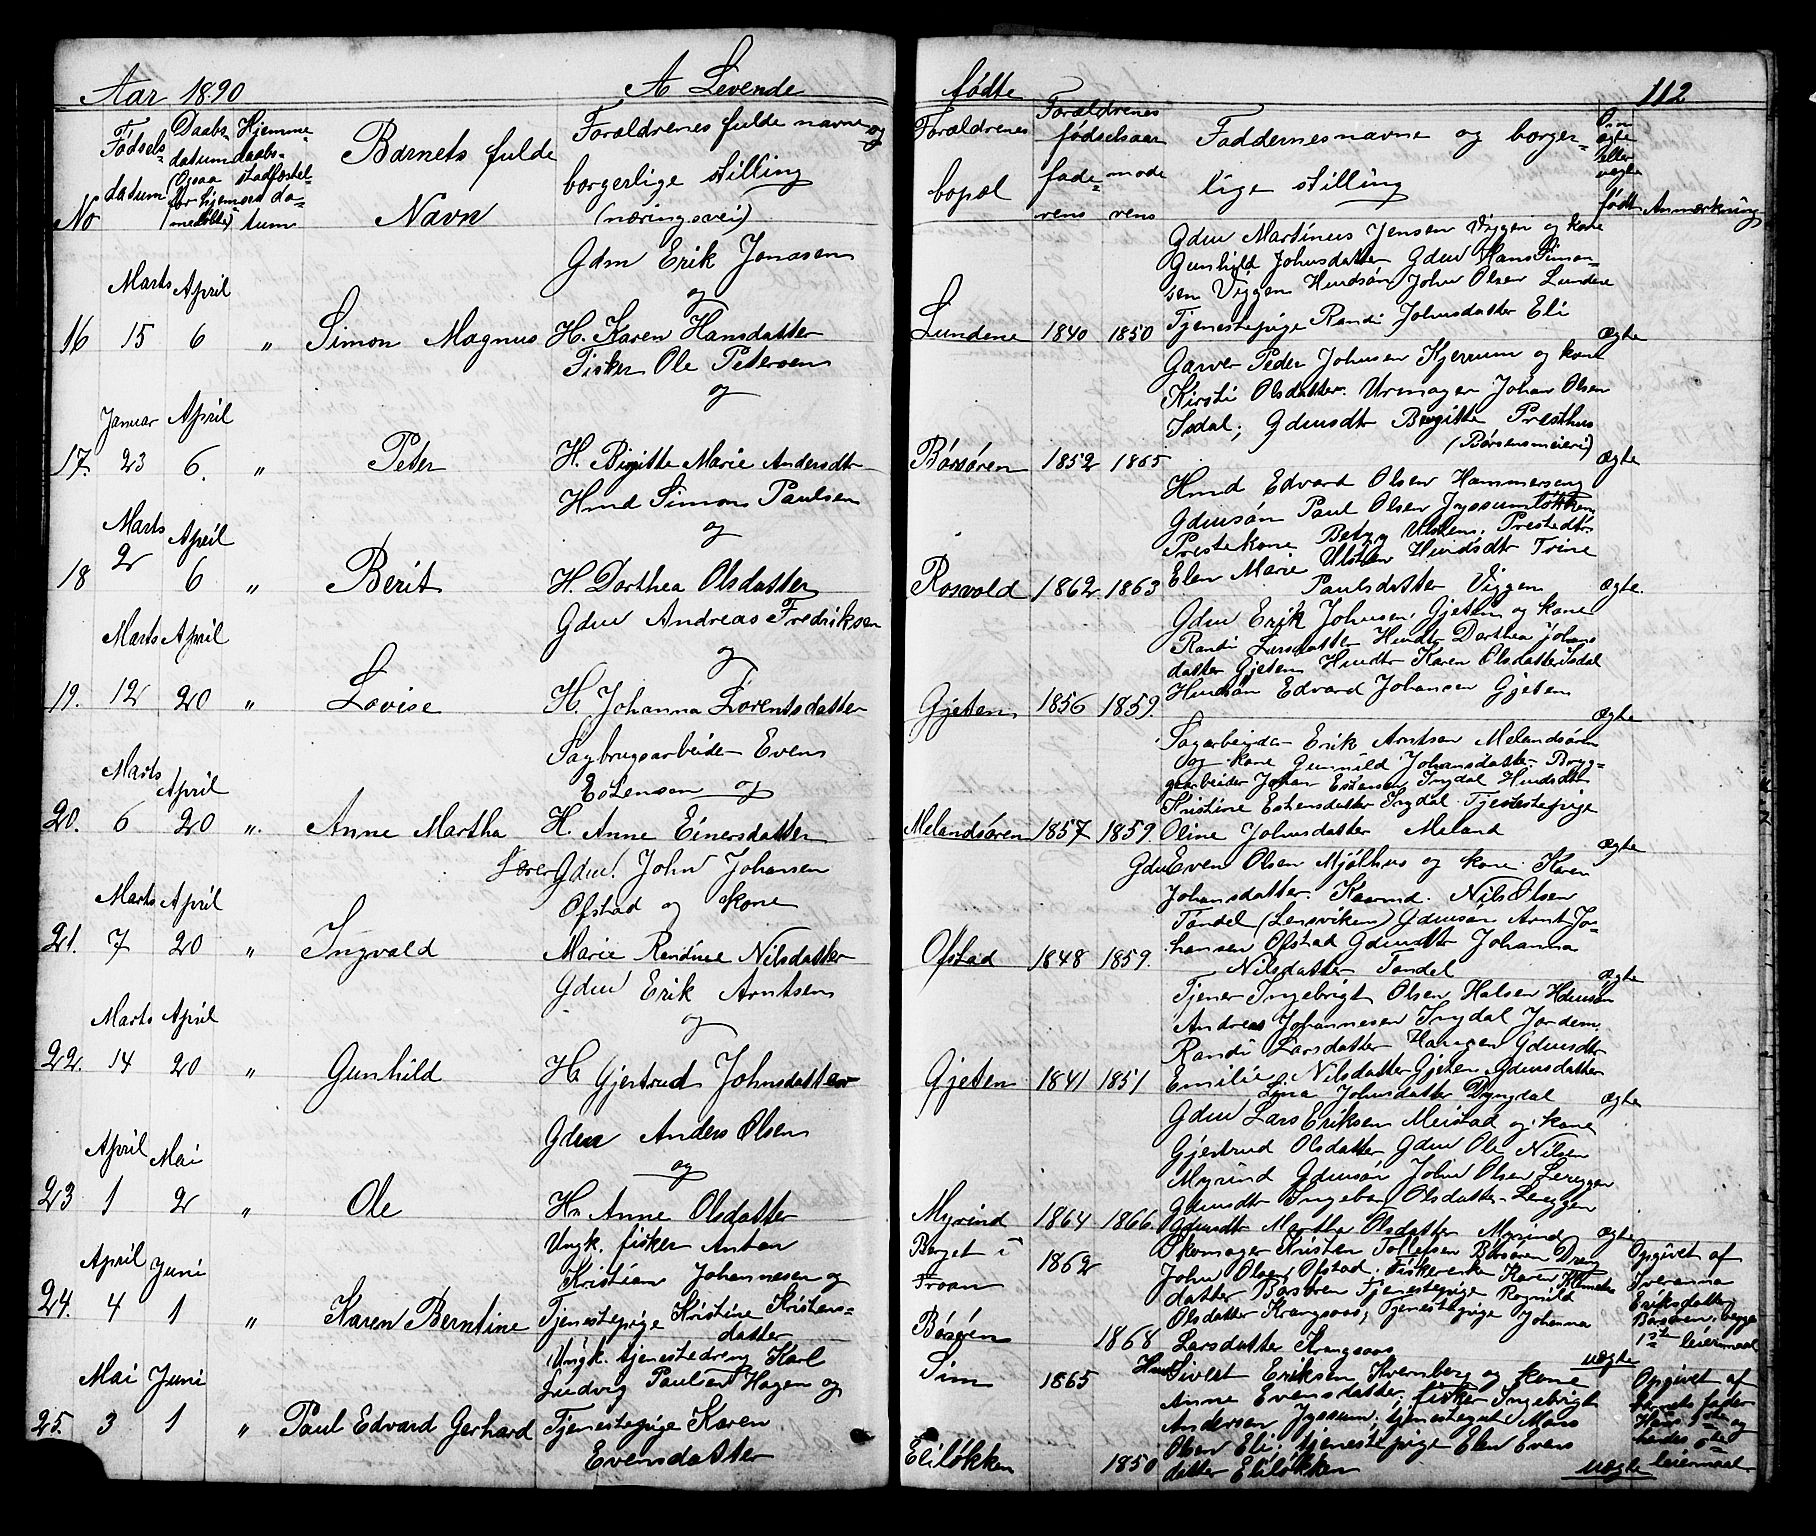 Aar 1890 A Levende fødte 112
No
Fødsels-
datum
Daabs-
datum
(Ogsaa
for hjem-
medøbte)
Hjemme-
daabs-
stadfæstel-
sed da-
tum
Barnets fulde
Navn
Forældrenes fulde navne og
borgerlige stilling
(næringsvei)
Forældrenes
bopæl
Forældrenes
fødselsaar
fade-
rens
mode
rens
Faddernes navne og borger-
lige stilling
Om
ægte
eller
uægte
født
Anmærkning
16 Marts 15 April 6 " Simon Magnus
Gdm Erik Jonasen
og
H. Karen Hansdatter
Lundene 1840 1850
Gdm Martinus Jensen Viggen og kone
Gunhild Johnsdatter Gdm Hans Simon-
sen Viggen Hmdsøn John Olsen Lundene
Tjenestepige Randi Johnsdatter Eli
ægte
17. Januar 23 April 6. " Peter
Fisker Ole Petersen
og
H. Birgitte Marie Andersdtr
Børsøren 1852 1865
Garver Peder Johnsen Kjerrum og kone
Kirsti Olsdatter. Urmager Johan Olsen
Isdal; Gdmsdtr Birgitte Presthus
(Børsensmeieri)
ægte
18 Marts 2 April 6 " Berit
Hmd Simon Paulsen
og
H. Dorthea Olsdatter
Rosvold 1862 1863
Hmd Edvard Olsen Hammereng
Gdmsøn Paul Olsen Jyssumløkken
Prestekone Betzy Ulsten, Prestedtr.
Elen Marie Ulsten Hmdsdtr Trine
Paulsdatter Viggen
ægte.
19. Marts 12 April 20 " Lovise
Gdm Andreas Fredriksen
og
H. Johanna Lorentsdatter
Gjeten 1856 1859.
Gdm Erik Johnsen Gjeten og kone
Randi Larsdatter Hmdtr Dorthea Johans
datter Gjeten Hmdtr Karen Olsdatter Isdal
Hmdsøn Edvard Johansen Gjeten
ægte
20. Marts 6 April 20 ". Anne Martha
Sagbrugsarbeider Even
Estensen og
H. Anne Einersdatter
Melandsøren 1857 1859.
Sagarbeider Erik Arntsen Melandsøren
og kone Gunnild Johansdatter Brygg-
gearbeider Johan Estensen Ingdal Hmdsdtr
Kristine Estensdatter Ingdal Tjenestepige
Oline Johnsdatter Meland
ægte
21. Marts 7 April 20 " Ingvald
Gdm. John Johansen
Ofstad og kone
Marie Randine Nilsdatter
Ofstad 1848 1859.
Gdm Even Olsen Mjølhus og kone Karen
Johansdatter. Kaarmd. Nils Olsen
Tøndel (Lensviken) Gdmsøn Arnt Jo-
hansen Ofstad Gdmdtr Johanna
Nilsdatter Tøndel
ægte
22. Marts 14 April 20 " Gunhild
Gdm Erik Arntsen
og
H. Gjertrud Johnsdatter
Gjeten 1841 1851
Tjener Ingebrigt Olsen Halsen Hdmsøn
Andreas Johannesen Ingdal Jordem.
Randi Larsdatter Haugen Gdmsdtr
Emilie Nilsdatter Gjeten, Gdmsdatter
Lina Johnsdatter Dyngdal
ægte
23 April 1 Mai 2 " Ole
Gdm Anders Olsen
og
H. Anne Olsdatter
Myrind 1864 1866.
Gdm Lars Eriksen Meistad og kone
Gjertrud Olsdatter Gdm Ole Nilsen
Myrind Gdmsøn John Olsen Lereggen
Gdmsdtr Ingebor Olsdatter Lereggen
Gdmsdtr Martha Olsdatter Myrind
ægte
24. April 4 Juni 1 " Karen Berntine
Ungk. fisker Anton
Kristian Johannesen og
Tjenestepige Kristine Kristens-
datter
Berget i
Froan 1862
Børsøren 1868
Skomager Kristen Tollefsen Børsøren Dreng
John Olsen Ofstad. Fiskerenke Karen Klemets
datter Børsøren Tjenestepige Ragnild
Olsdatter Krangsaas, Tjenestepige Johanna
Larsdatter Krangsaas
uægte
Opgivet af
Sveranna
Eriksdatter
Børsøren, begge
1ste leiermaal
25. Mai 3 Juni 1 " Paul Edvard Gerhard
Ungk. tjenestedreng Karl
Ludvig Paulsen Hagen og
Tjenestepige Karen
Evensdatter
Sim 1865
Eliløkken 1850
Hmd Sivert Eriksen Kvernberg og kone
Anne Evensdatter, fisker Ingebrigt
Andersen Jyssum, tjenestegut Mass
Olsen Eli, tjenestepige Elen Evens
datter Eliløkken
uægte
Opgivet af
barnets fader
Hans 1ste og
hendes 2det
leiermaal.